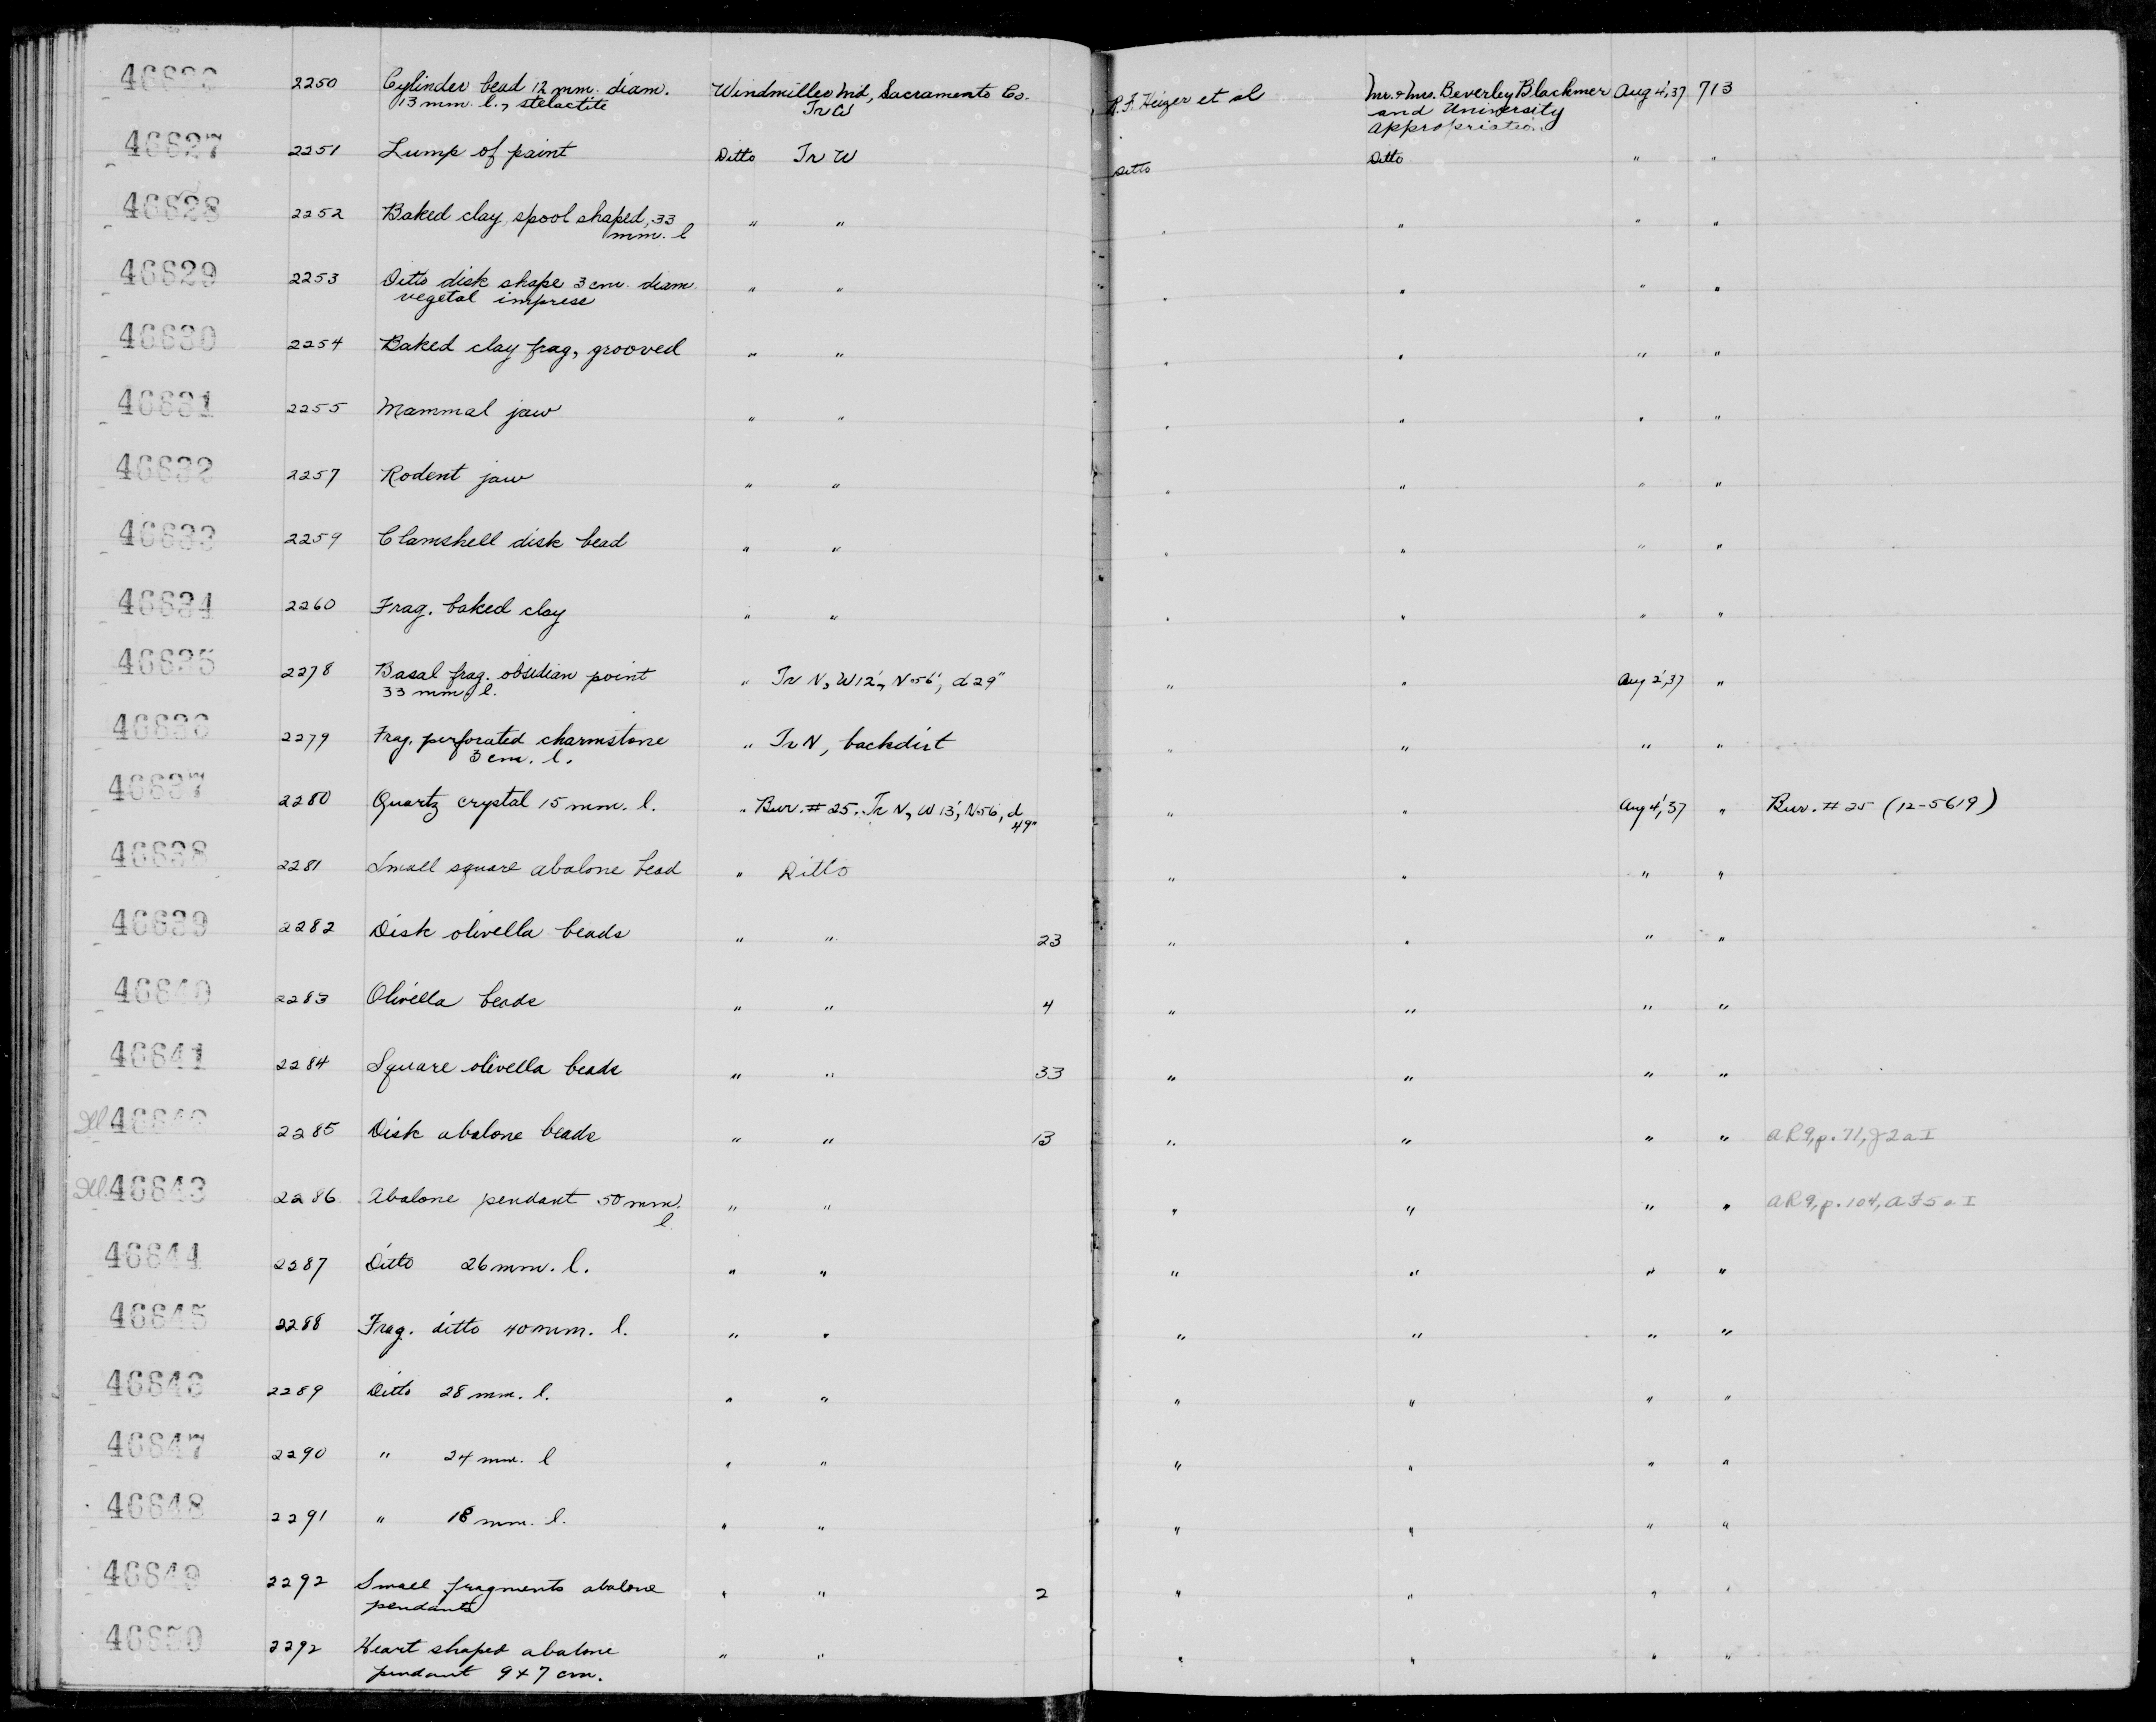 46826 2250 Cylinder bead 12 mm. diam. Windmiller Md, Sacramento Co. R.F. Heizer et al Mr. & Mrs. Beverley Blackmer Aug 4, '37 713
13 mm. l., stelactite Tr W and University
Appropriation
46827 2251 Lump of paint Ditto Tr W Ditto Ditto " "
46828 2252 Baked clay, spool shaped, 33 " " " " " "
mm. l
46829 2253 Ditto disk shape 3 cm. diam " " " " " "
vegetal impress
46830 2254 Baked clay frag, grooved " " " " " "
46831 2255 Mammal jaw " " " " " "
46832 2257 Rodent jaw " " " " " "
46833 2259 Clamshell disk bead " " " " " "
46834 2260 Frag. baked clay " " " " " "
46835 2278 Basal frag. obsidian point " Tr N, W12', N56', d 29" " " Aug 2, '37 "
33 mm. l.
46836 2279 Frag. perforated charmstone " Tr N, backdirt " " " "
3 cm. l.
46837 2280 Quartz crystal 15 mm. l. " Bur. # 25. Tr N, W 13', N56, d " " Aug 4, '37 " Bur. # 25 (12-5619)
49"
46838 2281 Small square abalone bead " Ditto " " " "
46839 2282 Disk olivella beads " " 23 " " " "
46840 2283 Olivella beads " " 4 " " " "
46841 2284 Square olivella beads " " 33 " " " "
46842 2285 Disk abalone beads " " 13 " " " " AR9, p. 71, J2aI
46843 2286 Abalone pendant 50 mm. " " " " " " AR9, p. 104, AF5aI
l.
46844 2287 Ditto 26 mm. l. " " " " " "
46845 2288 Frag. ditto 40 mm. l. " " " " " "
46846 2289 Ditto 28 mm. l. " " " " " "
46847 2290 " 24 mm. l " " " " " "
46848 2291 " 18 mm. l. " " " " " "
46849 2292 Small fragments abalone " " 2 " " " "
pendants
46850 2292 Heart shaped abalone " " " " " "
pendant 9 x 7 cm.